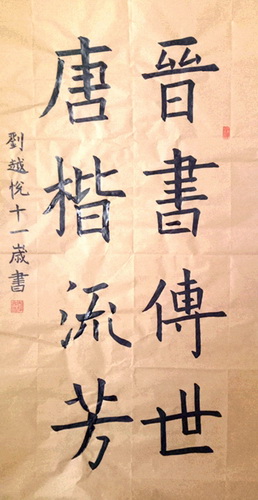 晉書傳世
唐楷流芳
劉越悅十一歲書